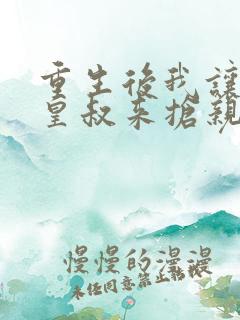 重生後我讓
皇叔來搶親
慢慢的漫漫
未任同意禁止轉載